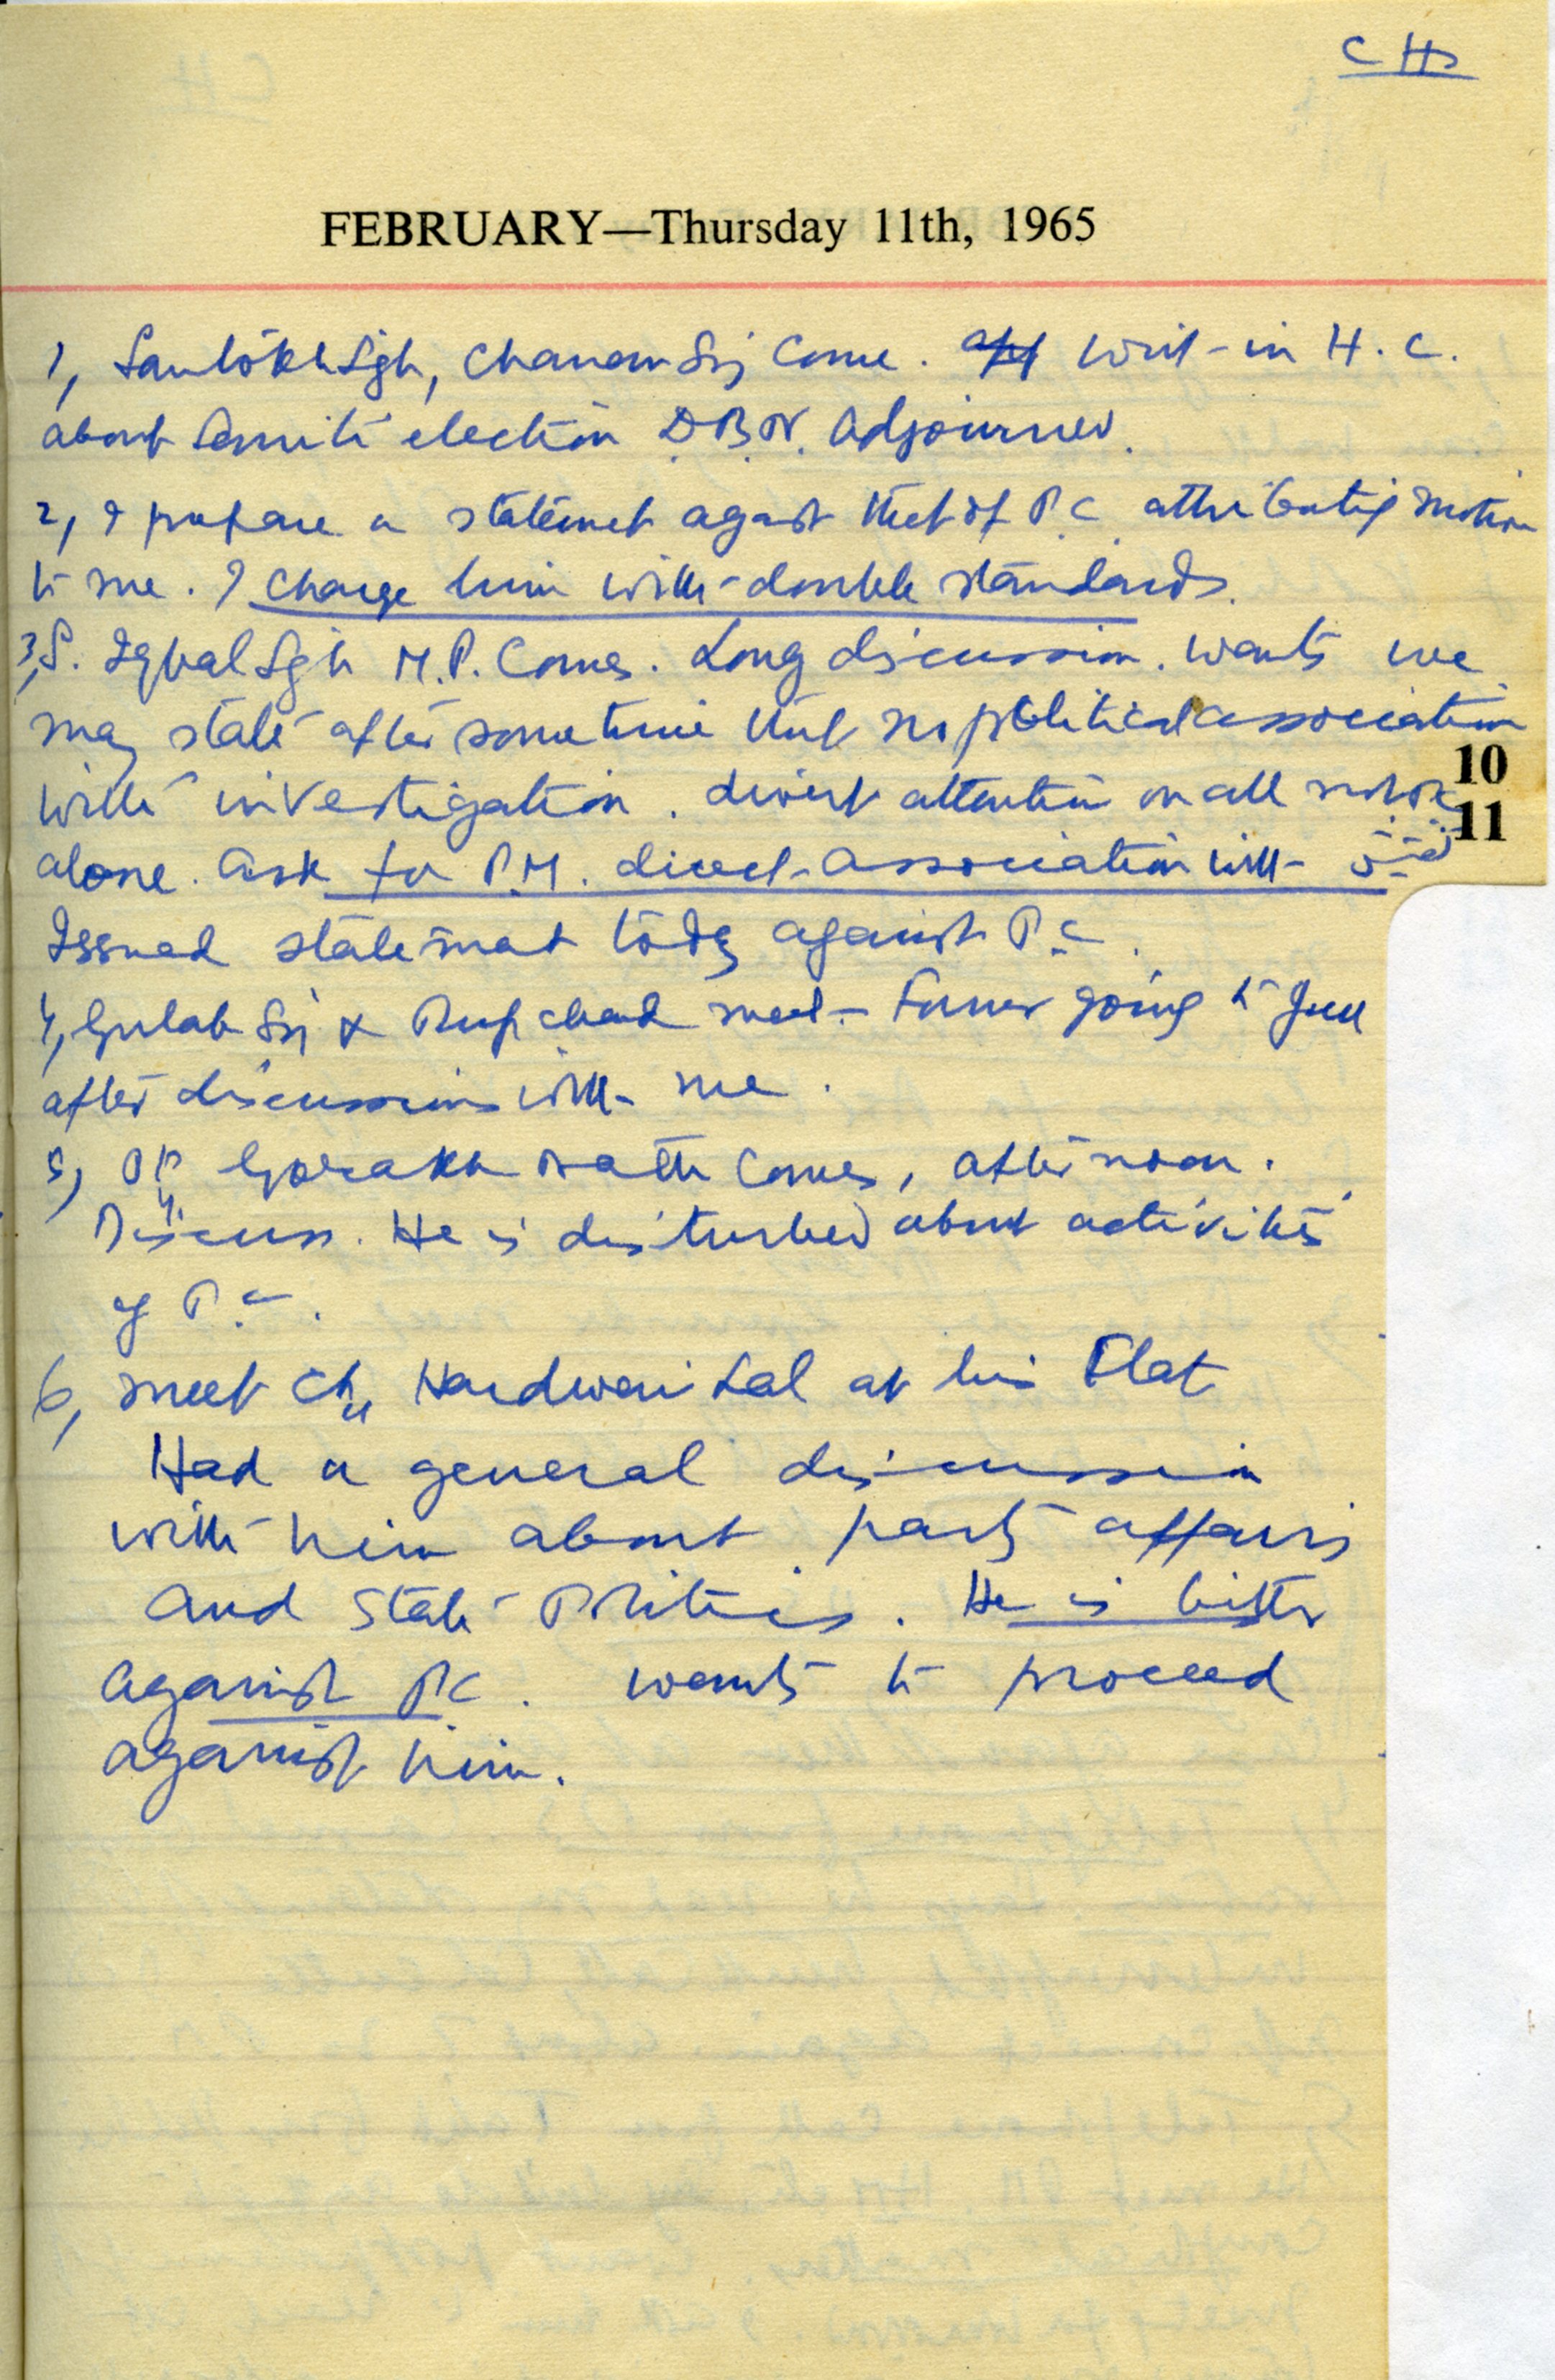 CH
FEBRUARY—Thursday 11th, 1965
1, Santokh Sgh, Chanan Sgj Come. writ - in H. C.
about Samiti election D.B.N. Adjourned.
2, I prepare a statemet agaist that of P.C. attributing motive
to me. I charge him with - double standards.
3, S. Iqbal Sgh M.P. Comes. Long discussion. wants we
may state after some time that no political association
with investigation. divert attention on all not
alone. Ask for P.M. direct - association with -
Issued statemnat today against P.C.
4, Gulab Sgj & Rup chand meet - Former going to Jull
after discussions with - me.
5, Gorakh Nath Comes, after noon.
Discuss. He is disturbed about activities
of P.C.
6, meet Ch, Hardwari Lal at his Flat
Had a general discussion
with him about party affairs
and State Politics. He is bitter
against PC. wants to proceed
against him.
10
11